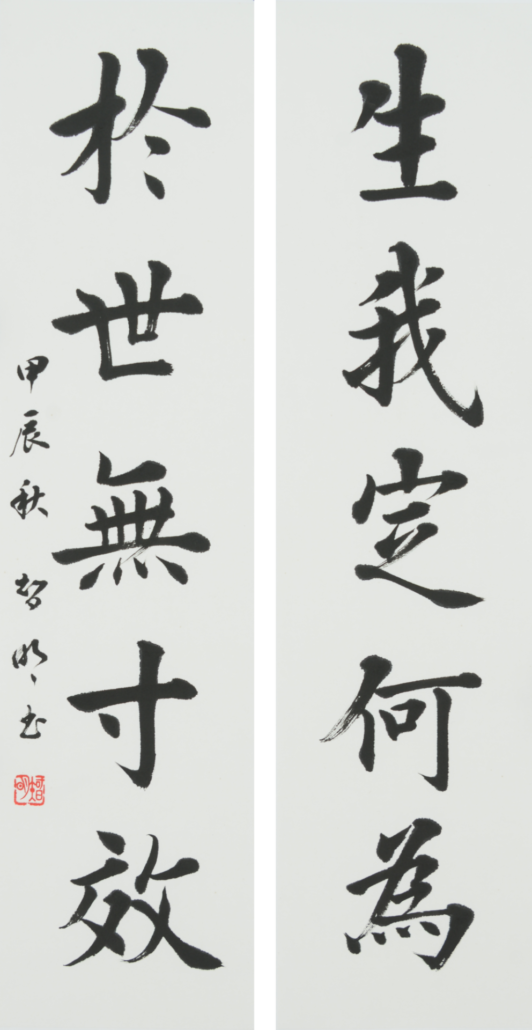 生我定何為
於世無寸效
甲辰秋 智明書